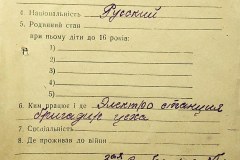 4. Національність Русский
5. Родинний стан
при ньому діти до 16 років:
1)
2)
3)
4)
5)
6. Ким працює і де Электро станция
бригадир цеха
7. Спеціяльність
8. Де проживав до війни